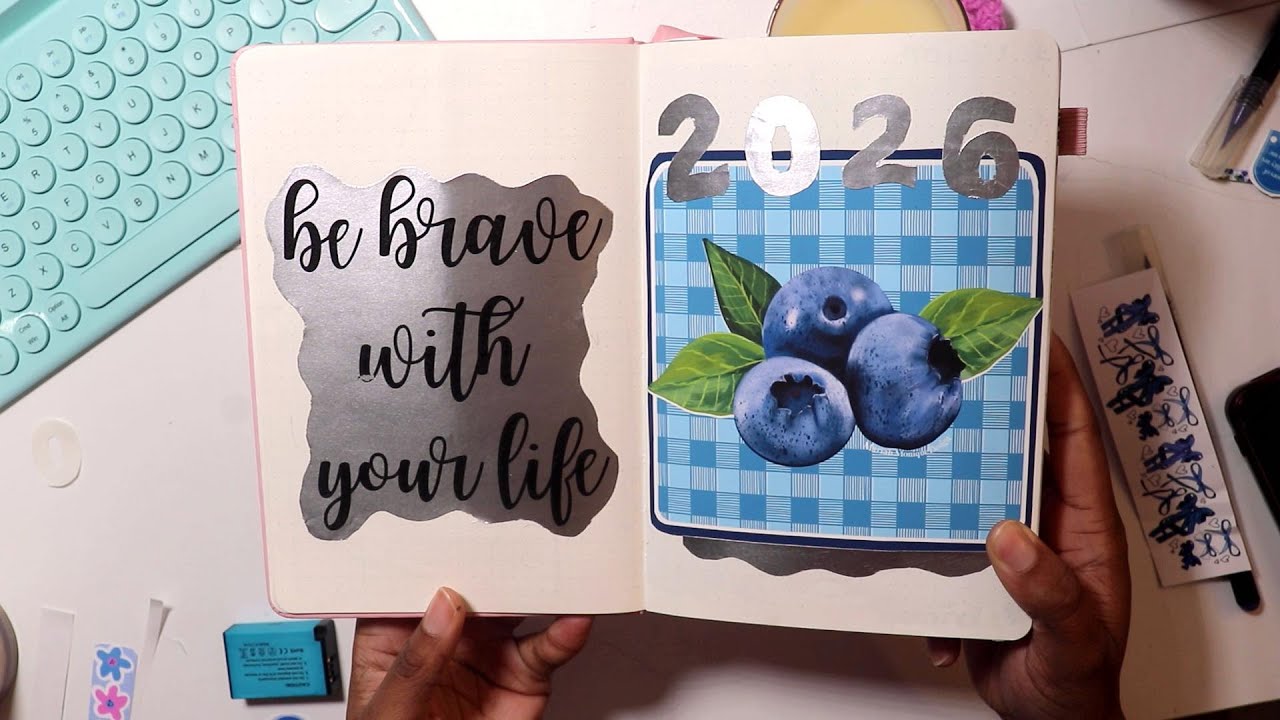 be brave
with
your life
2026
CAUTION